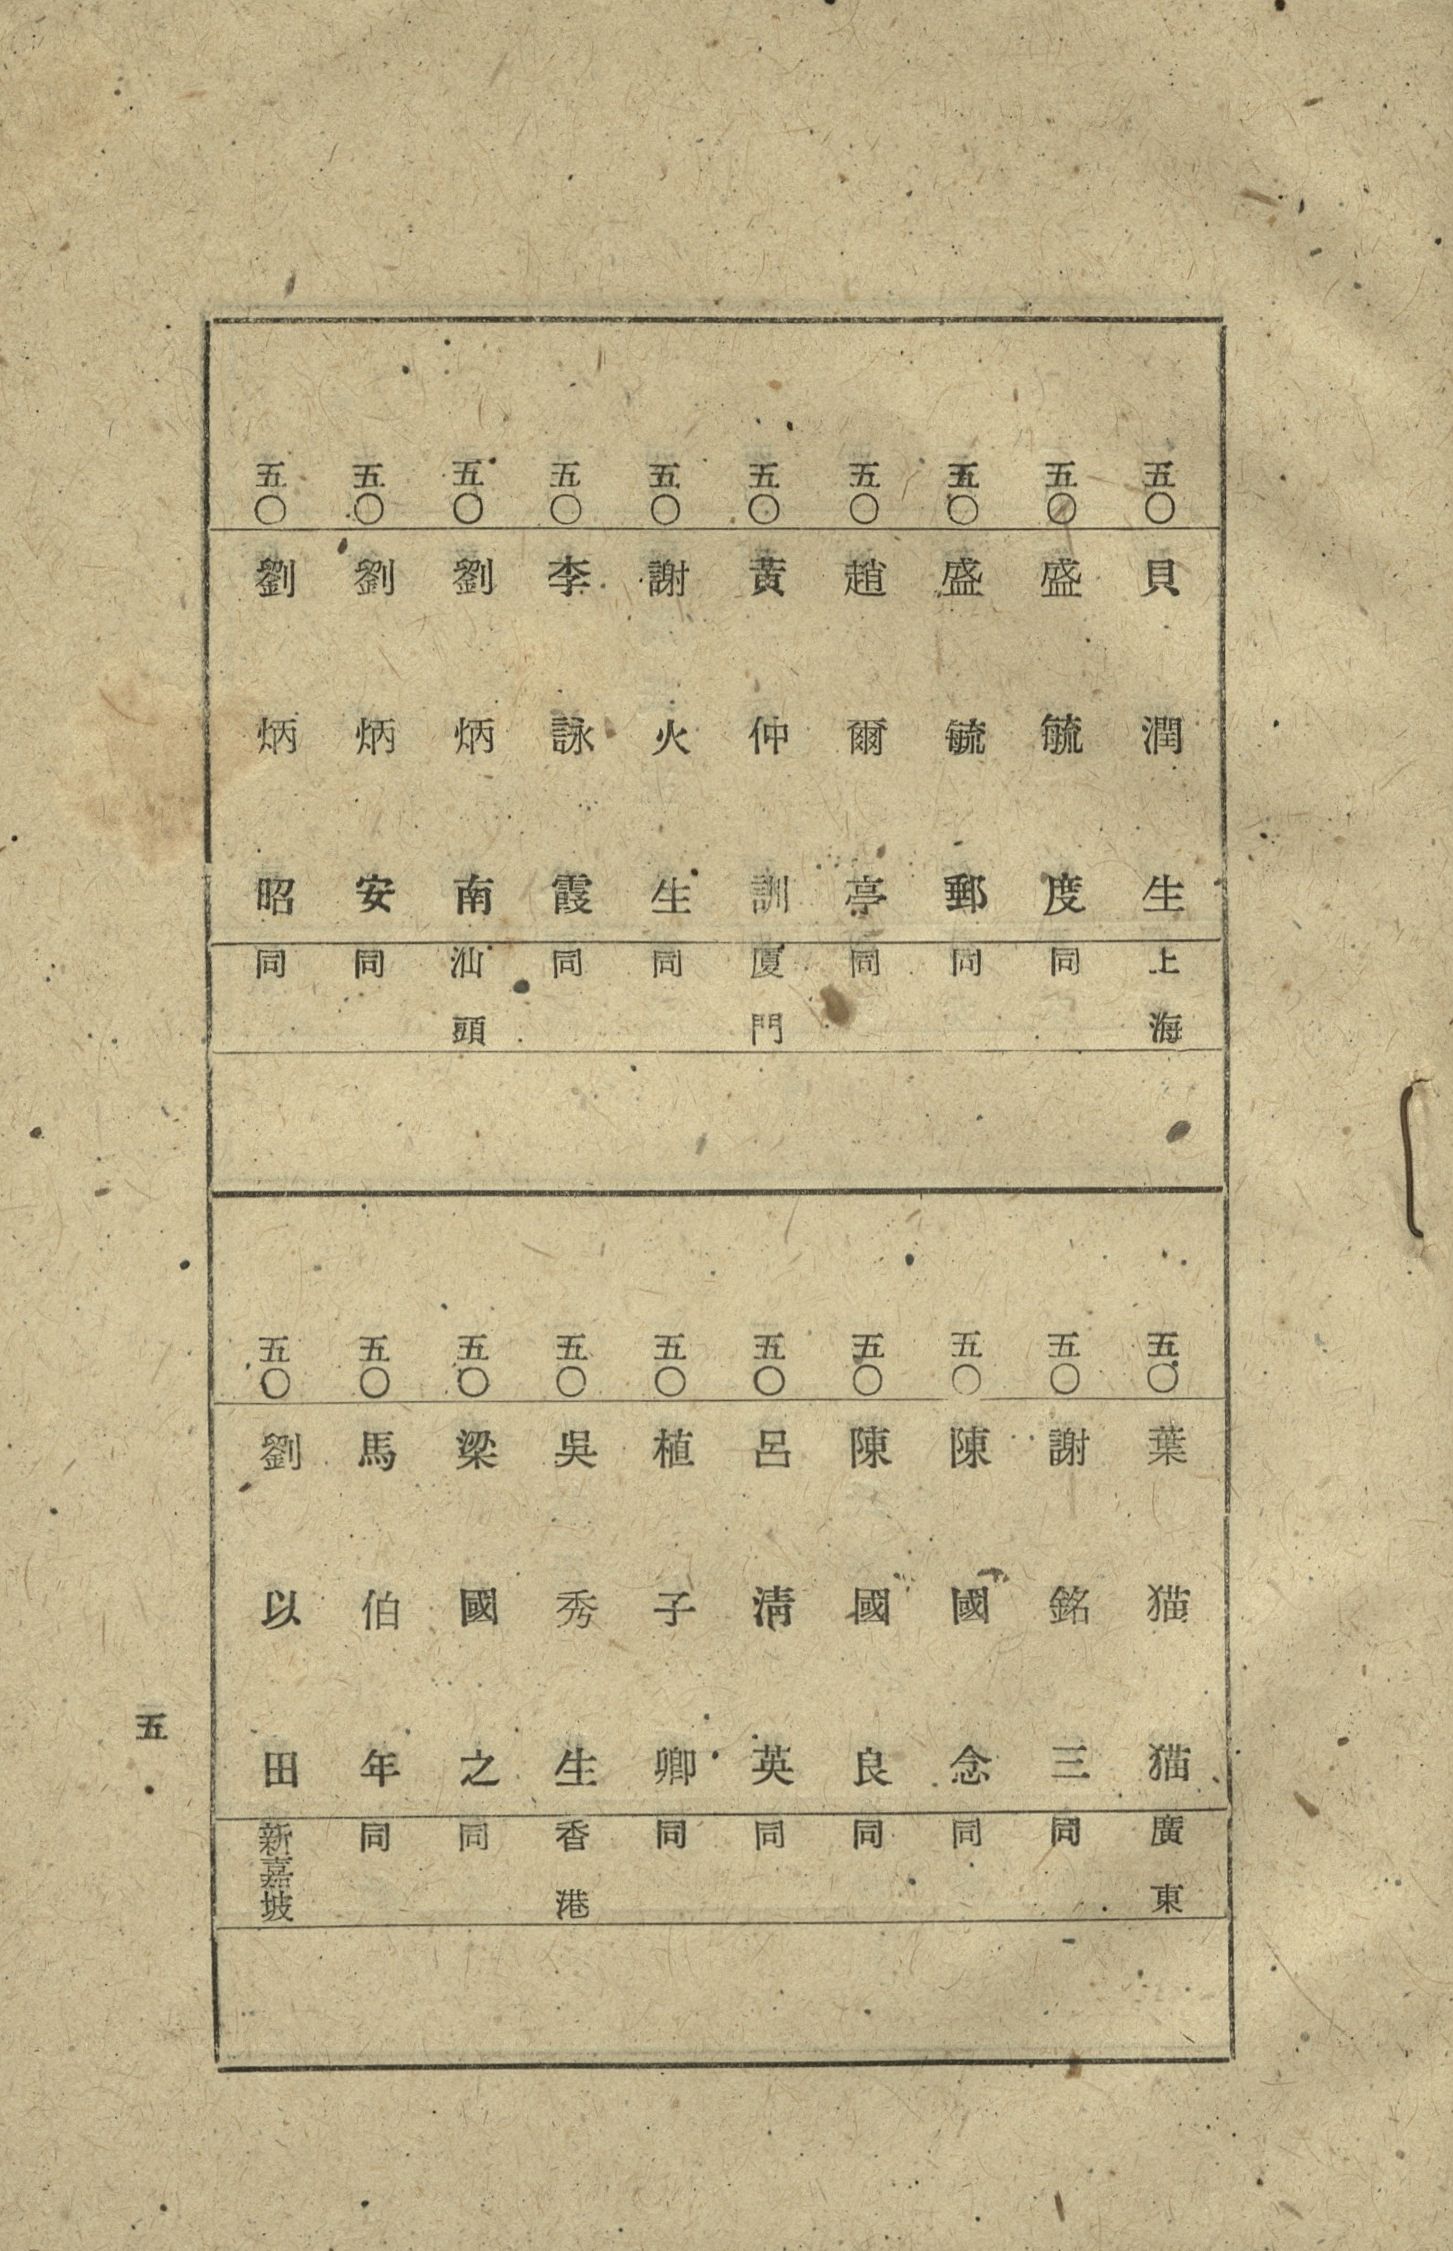 五〇 貝潤生 上海
五〇 盛毓度 同
五〇 盛毓郵 同
五〇 趙爾亭 同
五〇 黃仲訓 廈門
五〇 謝火生 同
五〇 李詠霞 同
五〇 劉炳南 汕頭
五〇 劉炳安 同
五〇 劉炳昭 同
五〇 葉猫猫 廣東
五〇 謝銘三 同
五〇 陳國念 同
五〇 陳國良 同
五〇 呂淸英 同
五〇 植子卿 同
五〇 吳秀生 香港
五〇 梁國之 同
五〇 馬伯年 同
五〇 劉以田 新嘉坡
五